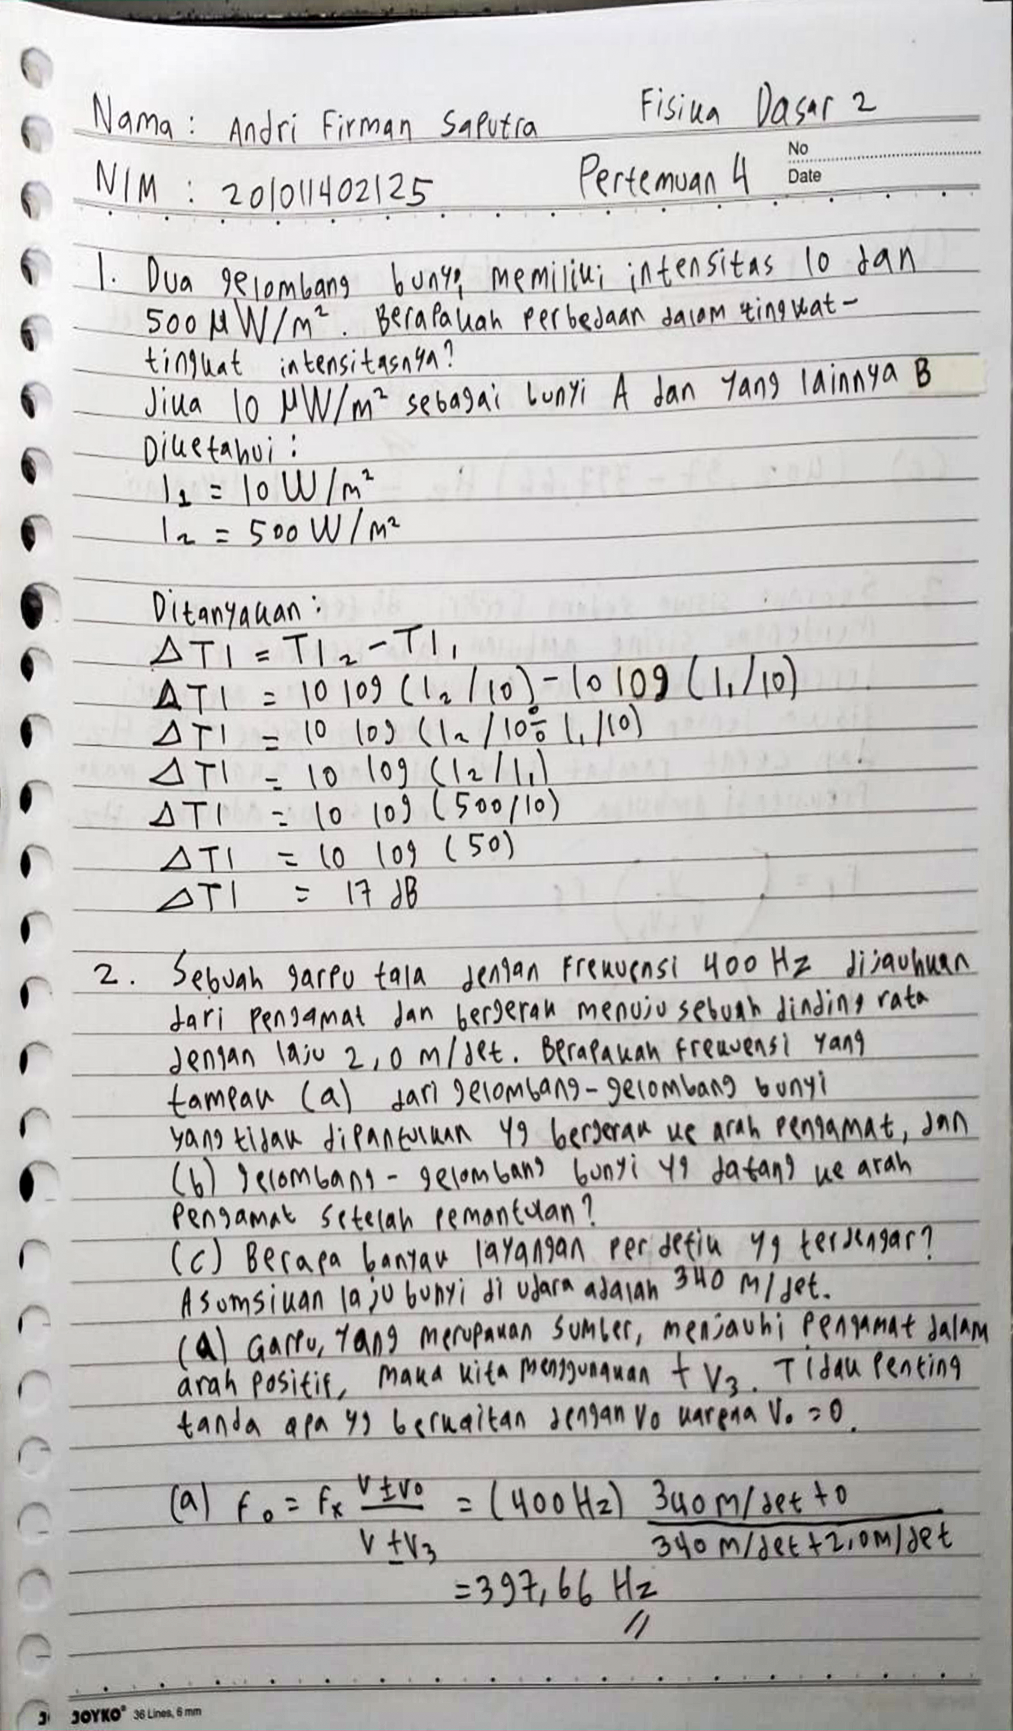 Nama : Andri Firman Saputra
Fisika Dasar 2
NIM : 201011402125
Pertemuan 4
No
Date
1. Dua gelombang bunyi memiliki intensitas 10 dan
500 μW/m². Berapakah perbedaan dalam tingkat-
tingkat intensitasnya?
Jika 10 μW/m² sebagai bunyi A dan yang lainnya B
Diketahui :
I₁ = 10 W/m²
I₂ = 500 W/m²
Ditanyakan :
ΔTI = TI₂ - TI₁
ΔTI = 10 log (I₂/10) - 10 log (I₁/10)
ΔTI = 10 log (I₂/10 ÷ I₁/10)
ΔTI = 10 log (I₂/I₁)
ΔTI = 10 log (500/10)
ΔTI = 10 log (50)
ΔTI = 17 dB
2. Sebuah garpu tala dengan Frekuensi 400 Hz dijauhkan
dari pengamat dan bergerak menuju sebuah dinding rata
dengan laju 2,0 m/det. Berapakah frekuensi yang
tampak (a) dari gelombang-gelombang bunyi
yang tidak dipantulkan yg bergerak ke arah pengamat, dan
(b) gelombang - gelombang bunyi yg datang ke arah
pengamat setelah pemantulan?
(c) Berapa banyak layangan per detik yg terdengar?
Asumsikan laju bunyi di udara adalah 340 m/det.
(a) Garpu, yang merupakan sumber, menjauhi pengamat dalam
arah positif, maka kita menggunakan + V₃. Tidak penting
tanda apa yg berkaitan dengan Vo karena Vo = 0.
(a) Fo = Fx (V ± Vo)/(V ± V₃) = (400 Hz) (340 m/det + 0)/(340 m/det + 2,0 m/det)
= 397,66 Hz //
JOYKO® 36 Lines, 6 mm